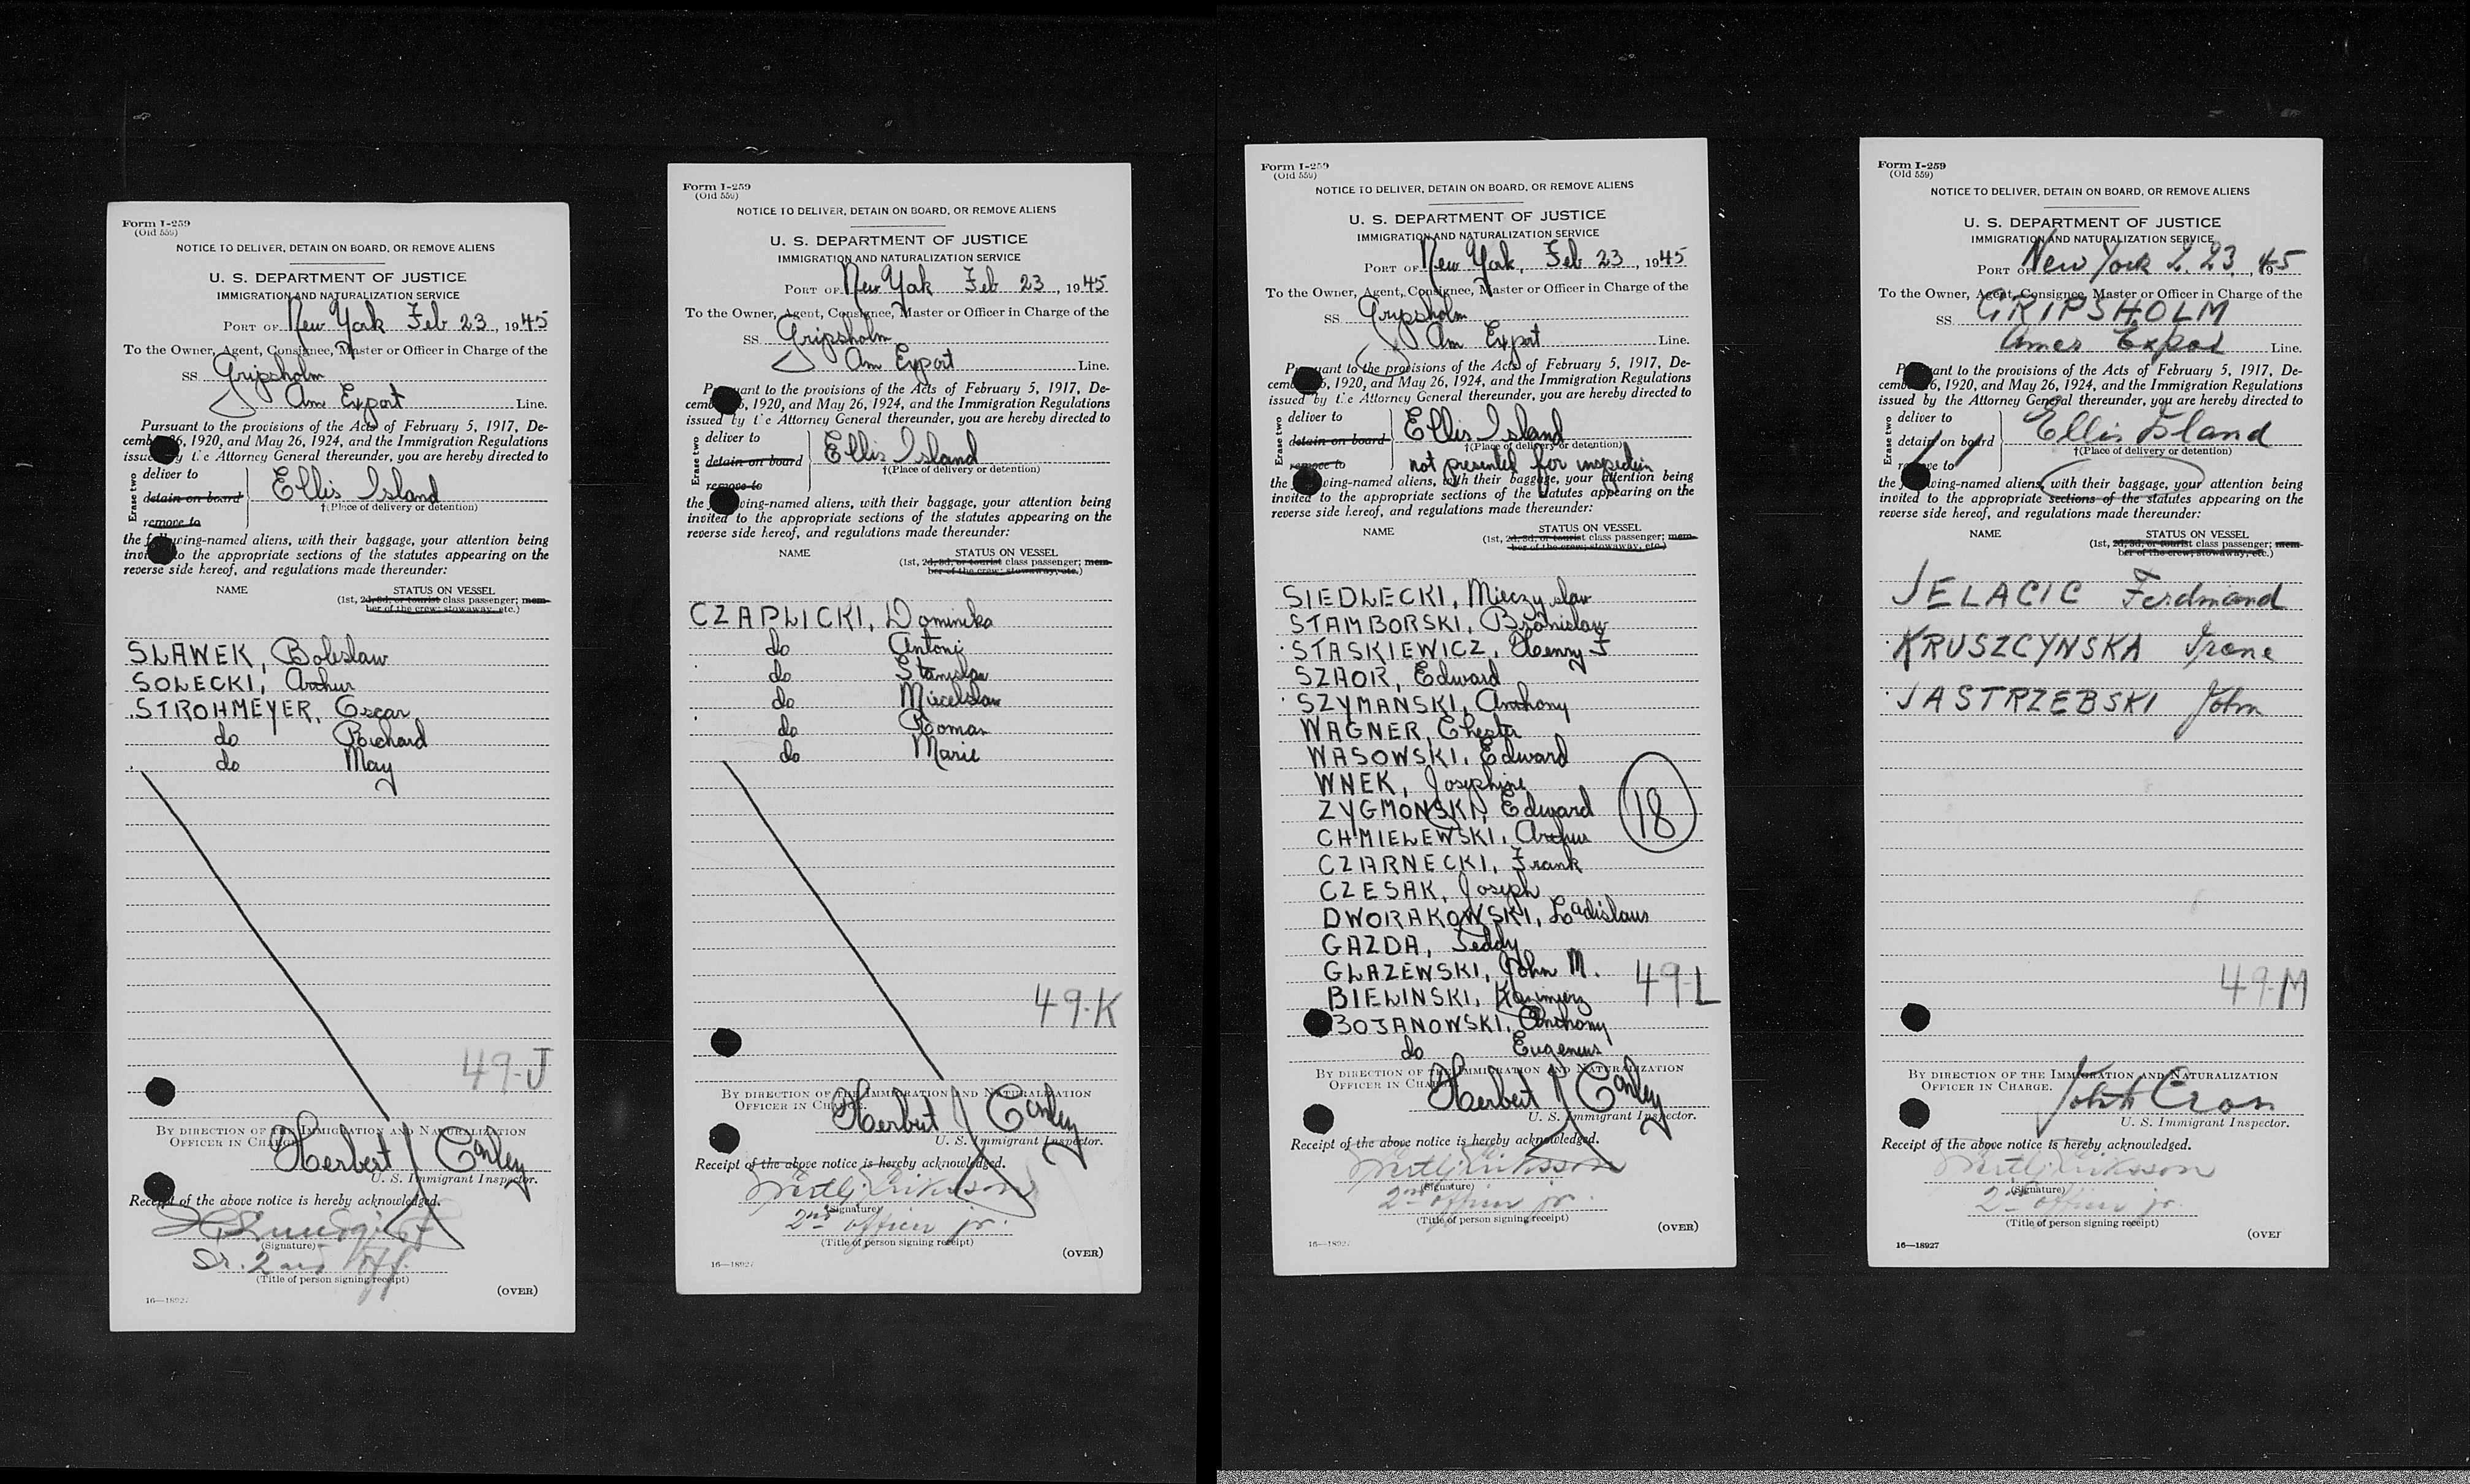 Form I-259
(Old 559)
NOTICE TO DELIVER, DETAIN ON BOARD, OR REMOVE ALIENS
U. S. DEPARTMENT OF JUSTICE
IMMIGRATION AND NATURALIZATION SERVICE
PORT OF New York Feb 23, 1945
To the Owner, Agent, Consignee, Master or Officer in Charge of the
SS Gripsholm
Am Export Line.
Pursuant to the provisions of the Acts of February 5, 1917, De-
cember 26, 1920, and May 26, 1924, and the Immigration Regulations
issued by the Attorney General thereunder, you are hereby directed to
Erase two
deliver to
detain on board
remove to
Ellis Island
†(Place of delivery or detention)
the following-named aliens, with their baggage, your attention being
invited to the appropriate sections of the statutes appearing on the
reverse side hereof, and regulations made thereunder:
NAME STATUS ON VESSEL
(1st, 2d, 3d, or tourist class passenger; mem-
ber of the crew; stowaway, etc.)
SLAWEK, Boleslaw
SOLECKI, Arthur
STROHMEYER, Oscar
do Richard
do May
49-J
BY DIRECTION OF THE IMMIGRATION AND NATURALIZATION
OFFICER IN CHARGE.
Herbert J Conley
U. S. Immigrant Inspector.
Receipt of the above notice is hereby acknowledged.
(Signature)
Sr. 2nd Off.
(Title of person signing receipt)
(OVER)
16—18927
Form I-259
(Old 559)
NOTICE TO DELIVER, DETAIN ON BOARD, OR REMOVE ALIENS
U. S. DEPARTMENT OF JUSTICE
IMMIGRATION AND NATURALIZATION SERVICE
PORT OF New York Feb 23, 1945
To the Owner, Agent, Consignee, Master or Officer in Charge of the
SS Gripsholm
Am Export Line.
Pursuant to the provisions of the Acts of February 5, 1917, De-
cember 26, 1920, and May 26, 1924, and the Immigration Regulations
issued by the Attorney General thereunder, you are hereby directed to
Erase two
deliver to
detain on board
remove to
Ellis Island
†(Place of delivery or detention)
the following-named aliens, with their baggage, your attention being
invited to the appropriate sections of the statutes appearing on the
reverse side hereof, and regulations made thereunder:
NAME STATUS ON VESSEL
(1st, 2d, 3d, or tourist class passenger; mem-
ber of the crew; stowaway, etc.)
CZAPLICKI, Dominika
do Antoni
do Stanislaw
do Miecelslaw
do Roman
do Marie
49-K
BY DIRECTION OF THE IMMIGRATION AND NATURALIZATION
OFFICER IN CHARGE.
Herbert J Conley
U. S. Immigrant Inspector.
Receipt of the above notice is hereby acknowledged.
Eriksson
(Signature)
2nd officer jr.
(Title of person signing receipt)
(OVER)
16—18927
Form I-259
(Old 559)
NOTICE TO DELIVER, DETAIN ON BOARD, OR REMOVE ALIENS
U. S. DEPARTMENT OF JUSTICE
IMMIGRATION AND NATURALIZATION SERVICE
PORT OF New York, Feb 23, 1945
To the Owner, Agent, Consignee, Master or Officer in Charge of the
SS Gripsholm
Am Export Line.
Pursuant to the provisions of the Acts of February 5, 1917, De-
cember 26, 1920, and May 26, 1924, and the Immigration Regulations
issued by the Attorney General thereunder, you are hereby directed to
Erase two
deliver to
detain on board
remove to
Ellis Island
†(Place of delivery or detention)
not presented for inspection
the following-named aliens, with their baggage, your attention being
invited to the appropriate sections of the statutes appearing on the
reverse side hereof, and regulations made thereunder:
NAME STATUS ON VESSEL
(1st, 2d, 3d, or tourist class passenger; mem-
ber of the crew; stowaway, etc.)
SIEDLECKI, Mieczyslaw
STAMBORSKI, Bronislaw
STASKIEWICZ, Henry J
SZAOR, Edward
SZYMANSKI, Anthony
WAGNER, Chester
WASOWSKI, Edward
WNEK, Josephine
ZYGMONSKI, Edward
18
CHMIELEWSKI, Arthur
CZARNECKI, Frank
CZESAK, Joseph
DWORAKOWSKI, Ladislaus
GAZDA, Teddy
GLAZEWSKI, John M.
49-L
BIELINSKI, Kazimierz
BOJANOWSKI, Anthony
do Eugenius
BY DIRECTION OF THE IMMIGRATION AND NATURALIZATION
OFFICER IN CHARGE.
Herbert J Conley
U. S. Immigrant Inspector.
Receipt of the above notice is hereby acknowledged.
Eriksson
(Signature)
2nd officer jr.
(Title of person signing receipt)
(OVER)
16—18927
Form I-259
(Old 559)
NOTICE TO DELIVER, DETAIN ON BOARD, OR REMOVE ALIENS
U. S. DEPARTMENT OF JUSTICE
IMMIGRATION AND NATURALIZATION SERVICE
PORT OF New York 2. 23, 1945
To the Owner, Agent, Consignee, Master or Officer in Charge of the
SS GRIPSHOLM
Amer Export Line.
Pursuant to the provisions of the Acts of February 5, 1917, De-
cember 26, 1920, and May 26, 1924, and the Immigration Regulations
issued by the Attorney General thereunder, you are hereby directed to
Erase two
deliver to
detain on board
remove to
Ellis Island
†(Place of delivery or detention)
the following-named aliens, with their baggage, your attention being
invited to the appropriate sections of the statutes appearing on the
reverse side hereof, and regulations made thereunder:
NAME STATUS ON VESSEL
(1st, 2d, 3d, or tourist class passenger; mem-
ber of the crew; stowaway, etc.)
JELACIC Ferdinand
KRUSZCYNSKA Irene
JASTRZEBSKI John
49-M
BY DIRECTION OF THE IMMIGRATION AND NATURALIZATION
OFFICER IN CHARGE.
John Cron
U. S. Immigrant Inspector.
Receipt of the above notice is hereby acknowledged.
Eriksson
(Signature)
2nd officer jr.
(Title of person signing receipt)
(OVER
16—18927